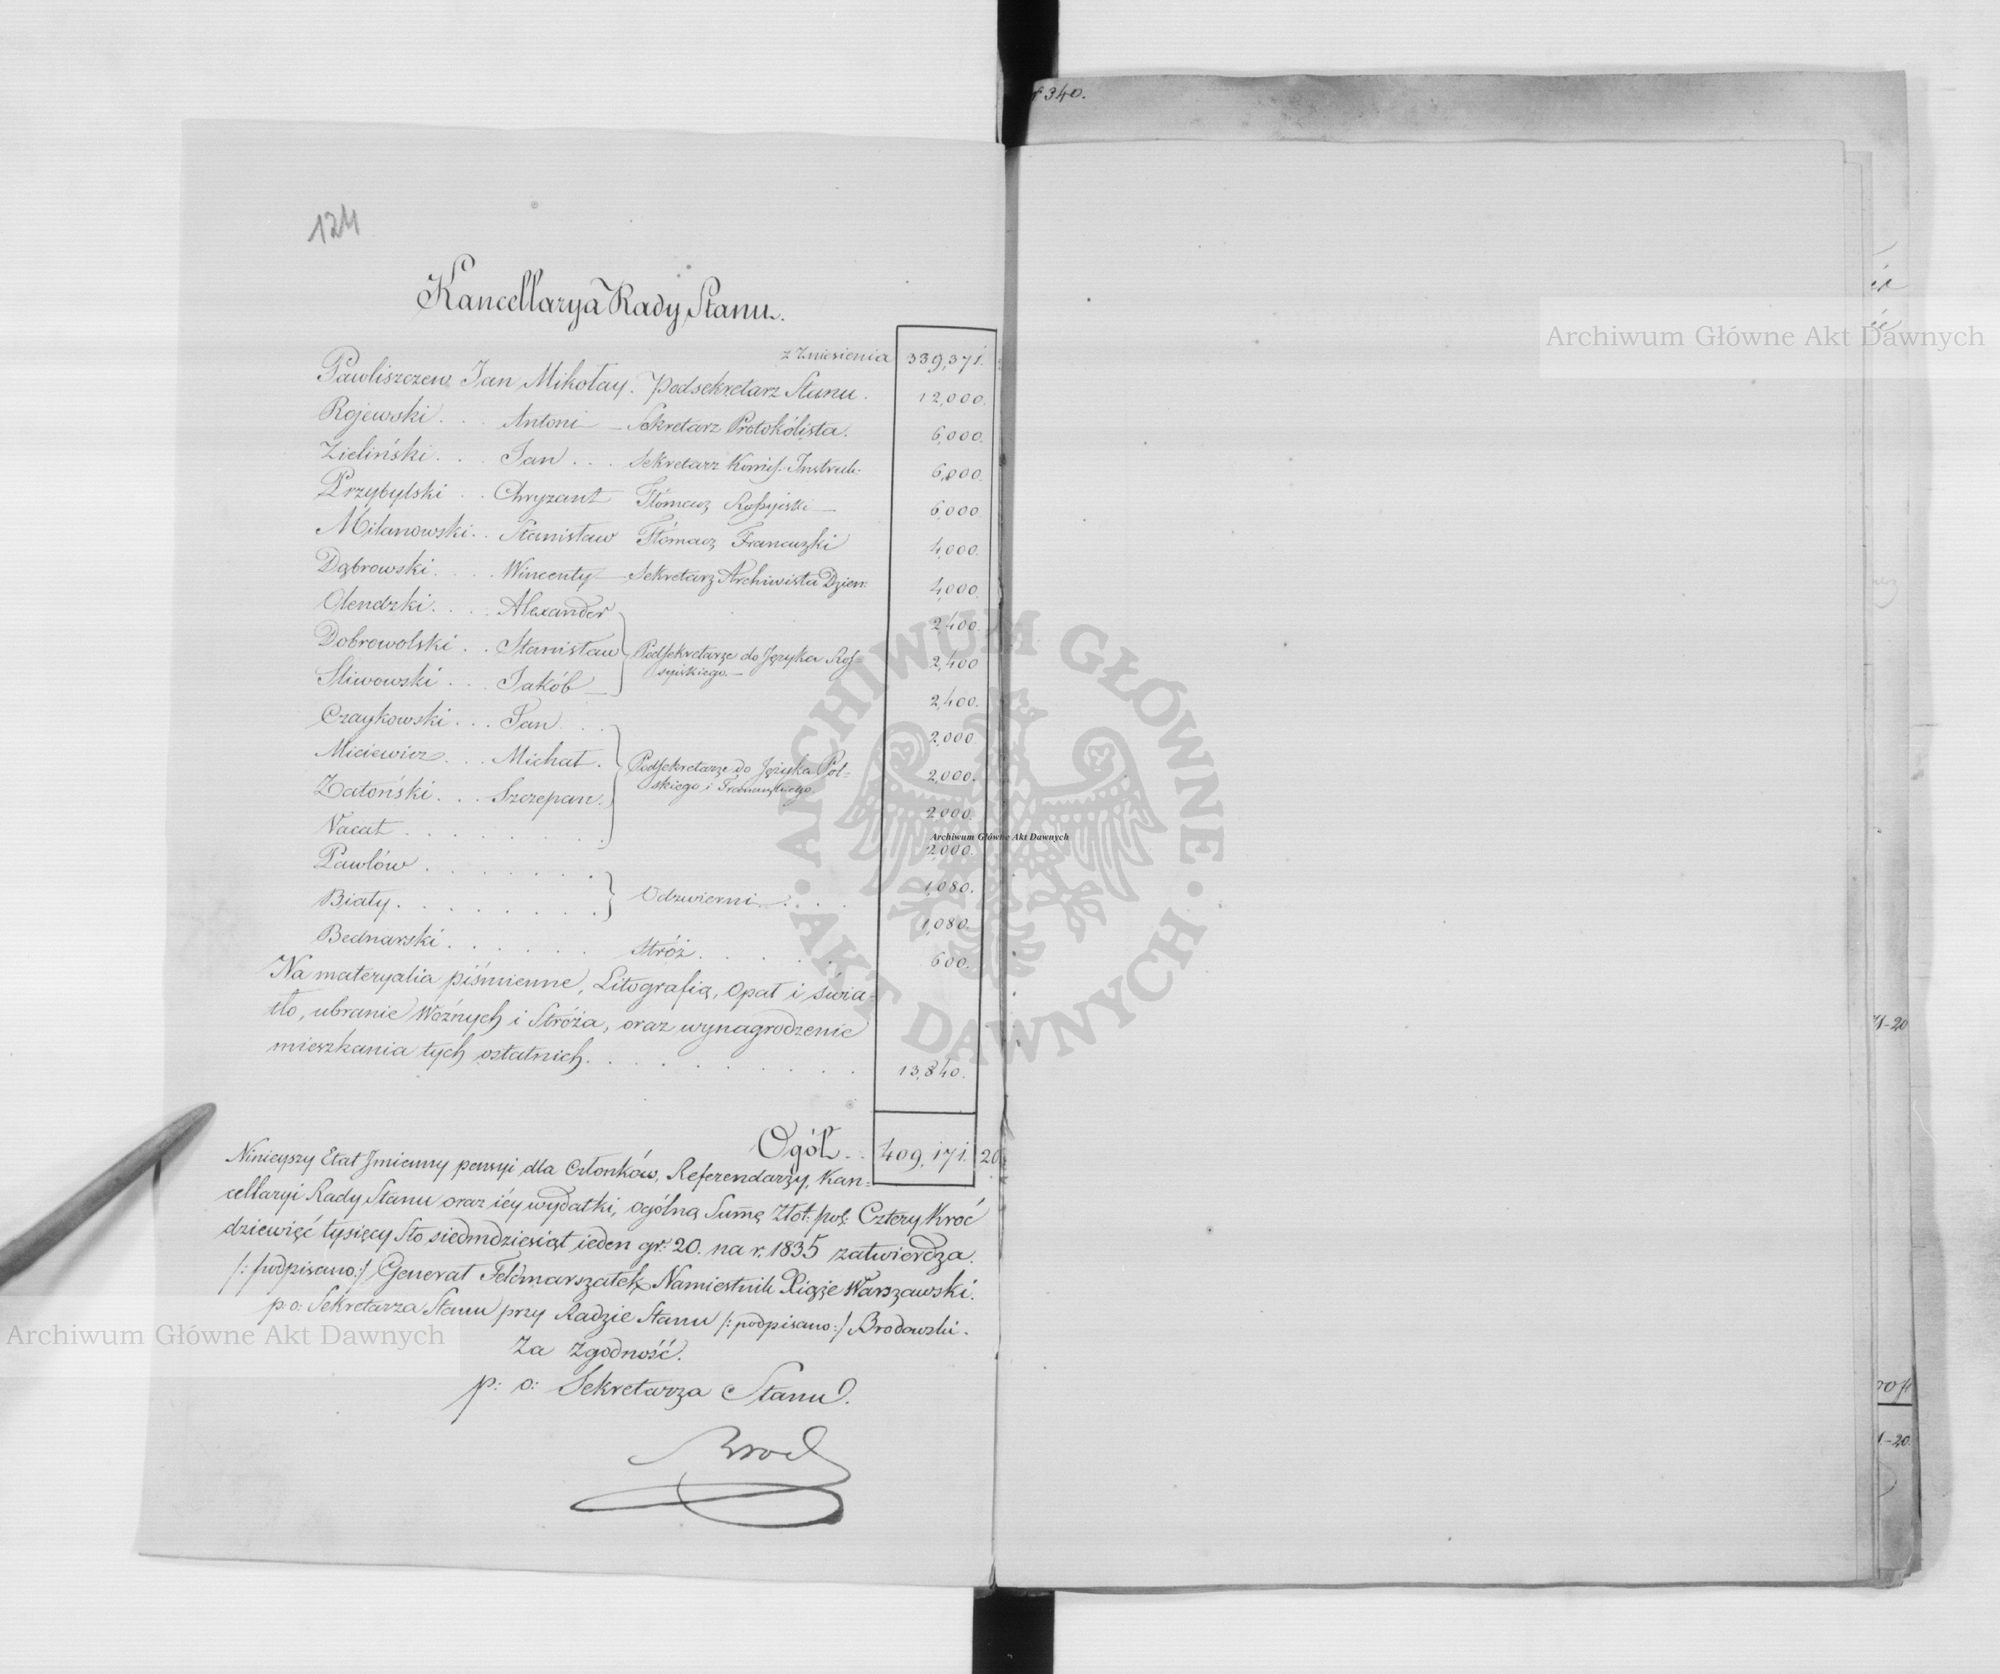 f 340.
124
Kancellarya Rady Stanu.
z Zniesienia 339,371.
Pawliszczew Jan Mikołay. Podsekretarz Stanu. 12,000.
Rojewski. . . Antoni — Sekretarz Protokólista. 6,000.
Zieliński. . . Jan . . . Sekretarz Komis. Instruk. 6,000.
Przybylski . . Chryzant Tłómacz Rossyiski — 6,000
Milanowski. . Stanisław Tłómacz Francuzki 4,000.
Dąbrowski. . . . Wincenty — Sekretarz Archiwista Dzien: 4,000.
Olendzki. . . . Alexander 2,400.
Dobrowolski . . Stanisław Podsekretarze do Języka Ros= 2,400
syiskiego. —
Sliwowski . . . Jakób — 2,400.
Czaykowski . . . Jan . . . 2,000.
Miciewicz . . . Michał . Podsekretarze do Języka Pol= 2,000.
skiego i Francuzkiego.
Zatoński. . . Szczepan. 2,000.
Vacat . . . . . . . . 2,000.
Pawłów . . . . . . . 1,080.
Biały. . . . . . . . Odzwierni . . . . 1,080.
Bednarski . . . . . . Stróż . . . . . 600.
Na materyalia piśmienne, Litografią, Opał i świa=
tło, ubranie Woźnych i Stróża, oraz wynagrodzenie
mieszkania tych ostatnich. . . . . . . . 13,840.
Ogół . . 409,171. 20
Ninieyszy Etat Jmienny pensyi dla Członków, Referendarzy, Kan=
cellaryi Rady Stanu oraz iéy wydatki, ogólną Summę Złot: pol: Cztery Kroć
dziewięć tysięcy Sto siedmdziesiąt ieden gr. 20. na r. 1835 zatwierdza.
/: podpisano :/ Generał Feldmarszałek Namiestnik Xiąże Warszawski.
p. o: Sekretarza Stanu przy Radzie Stanu /: podpisano :/ Brodowski.
Za Zgodność.
p: o: Sekretarza Stanu.
Brod
Archiwum Główne Akt Dawnych
Archiwum Główne Akt Dawnych
Archiwum Główne Akt Dawnych
ARCHIWUM GŁÓWNE · AKT DAWNYCH ·